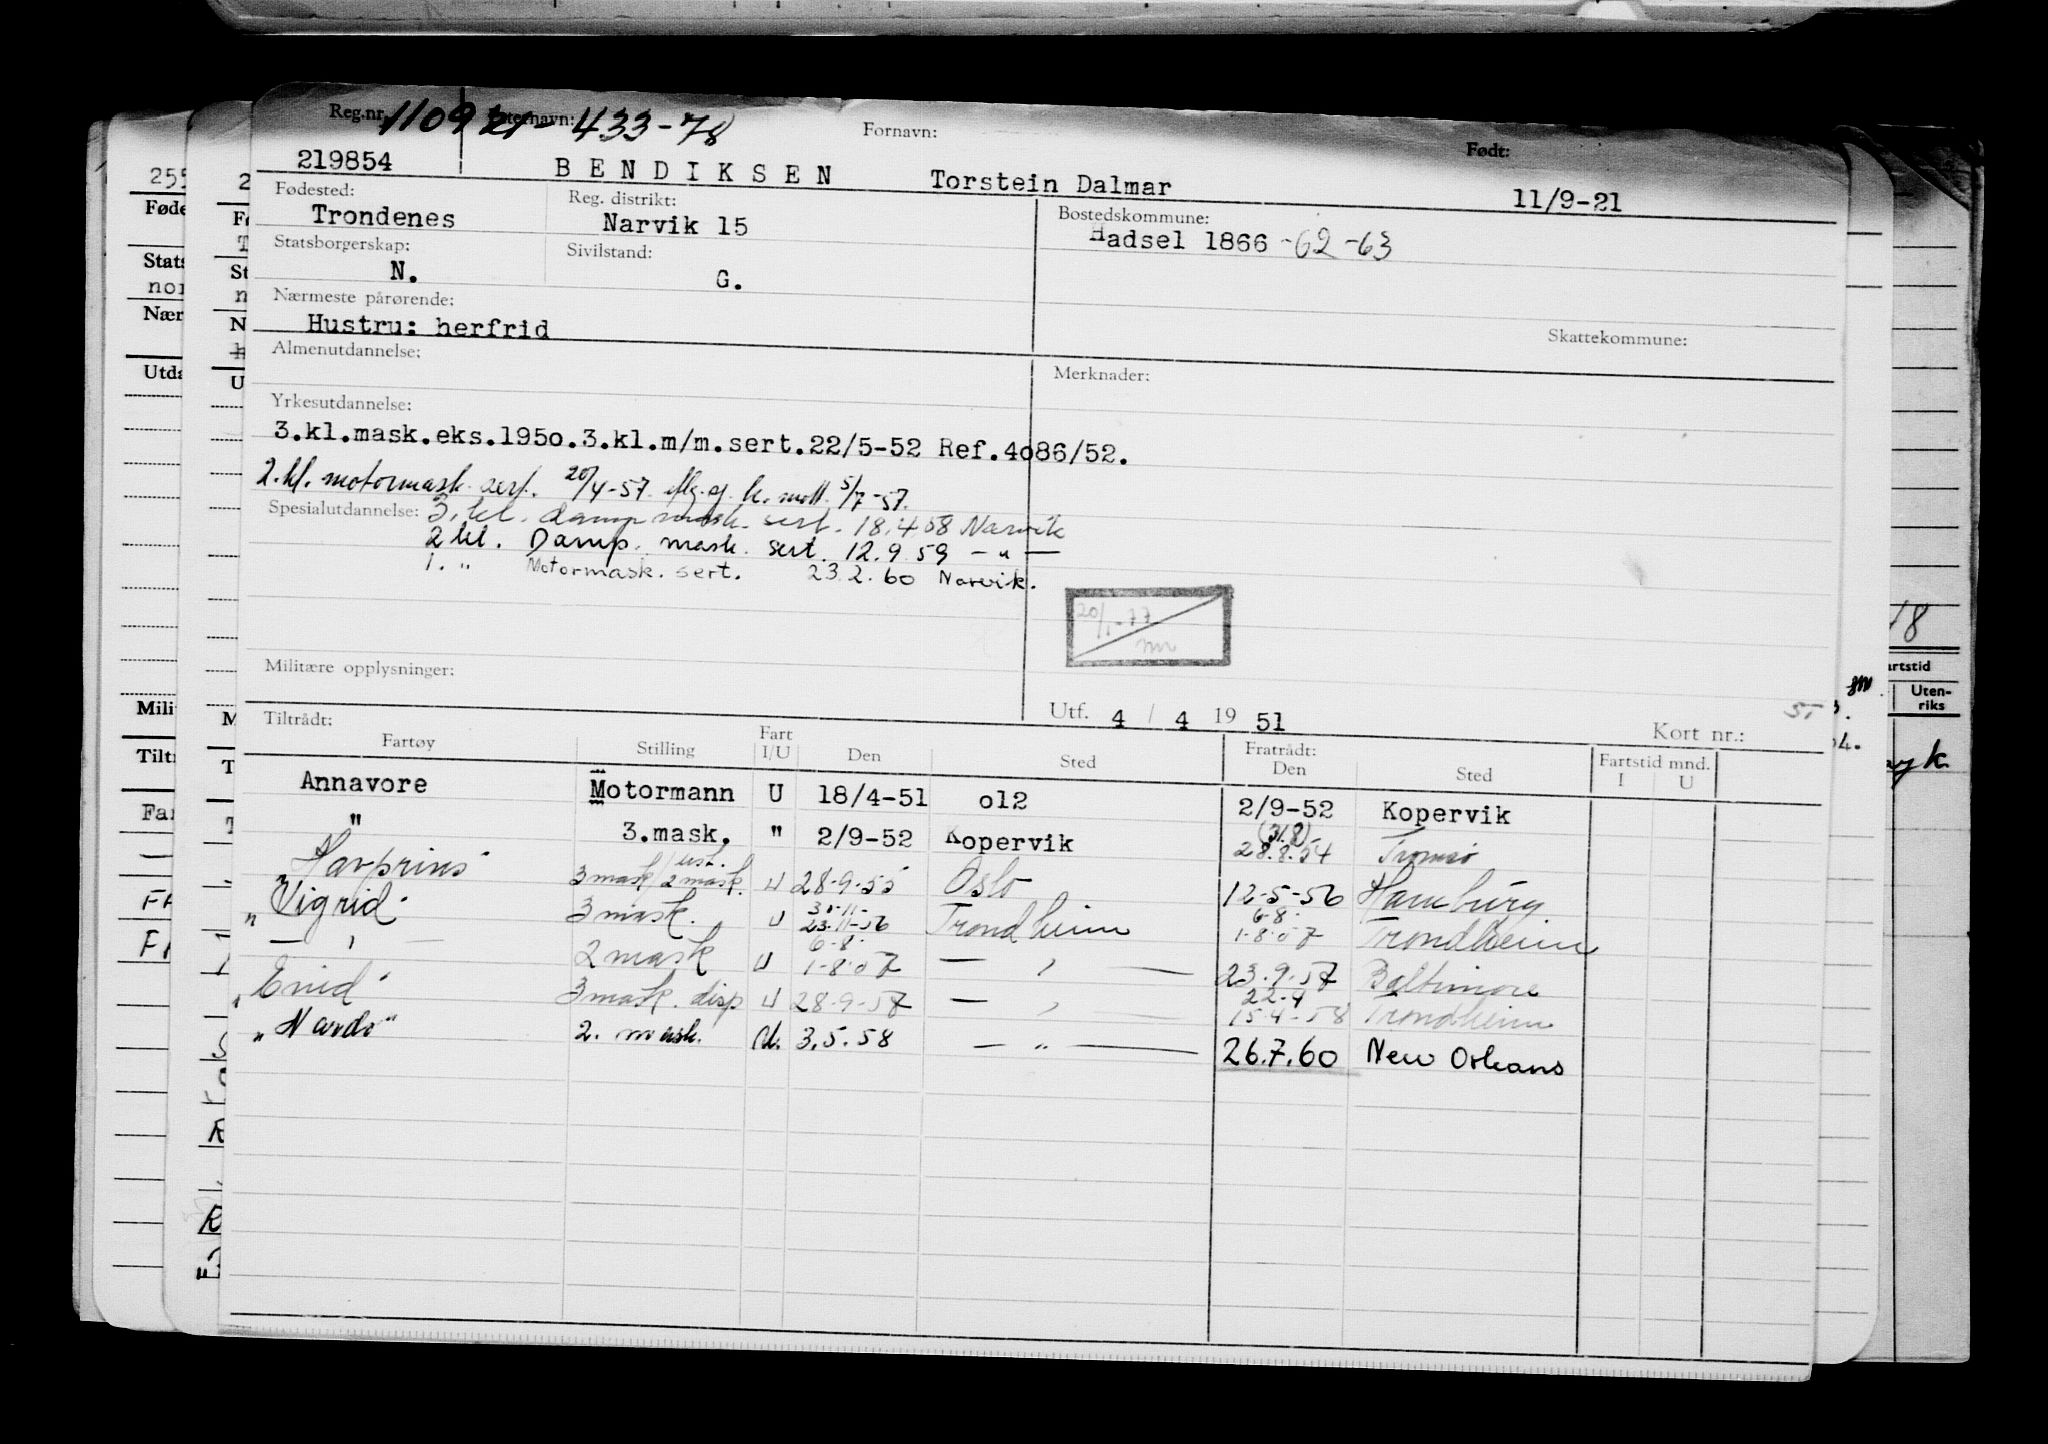 Reg.nr. 110921-433-78 Etterhavn: Fornavn: Født:
219854 BENDIKSEN Torstein Dalmar 11/9-21
Fødested: Reg. distrikt: Bostedskommune:
Trondenes Narvik 15 Hadsel 1866 -62-63
Statsborgerskap: Sivilstand:
N. G.
Nærmeste pårørende:
Hustru: herfrid Skattekommune:
Almenutdannelse: Merknader:
Yrkesutdannelse:
3.kl.mask.eks.195o.3.kl.m/m.sert.22/5-52 Ref.4o86/52.
2.kl. motormask. sert. 20/4-57. 5/7-57.
Spesialutdannelse: 3. kl. damp mask. sert. 18.4.58 Narvik
2 kl. Damp. mask. sert. 12.9.59 - " -
1. " Motormask. sert. 23.2.60 Narvik.
20/1-77
Militære opplysninger:
Utf. 4 / 4 19 51 Kort nr.:
Tiltrådt: Fratrådt:
Fartøy Stilling Fart I/U Den Sted Den Sted Fartstid mnd. I U
Annavore Motormann U 18/4-51 o12 2/9-52 Kopervik
" 3.mask. " 2/9-52 Kopervik (31.8) 28.8.54 Tromsø
"Havprins" 3 mask/2 mask. U 28-9-55 Oslo 12-5-56 Hamburg
"Sigrid" 3 mask. U 30-11- 23-11-56 Trondheim 6-8- 1-8-57 Trondheim
— " — 2 mask U 6-8- 1-8-57 — " — 23.9.57 Baltimore
"Enid" 3 mask. disp U 28-9-57 — " — 22-4 15-4-58 Trondheim
"Nardo" 2. mask. U. 3.5.58 — " — 26.7.60 New Orleans